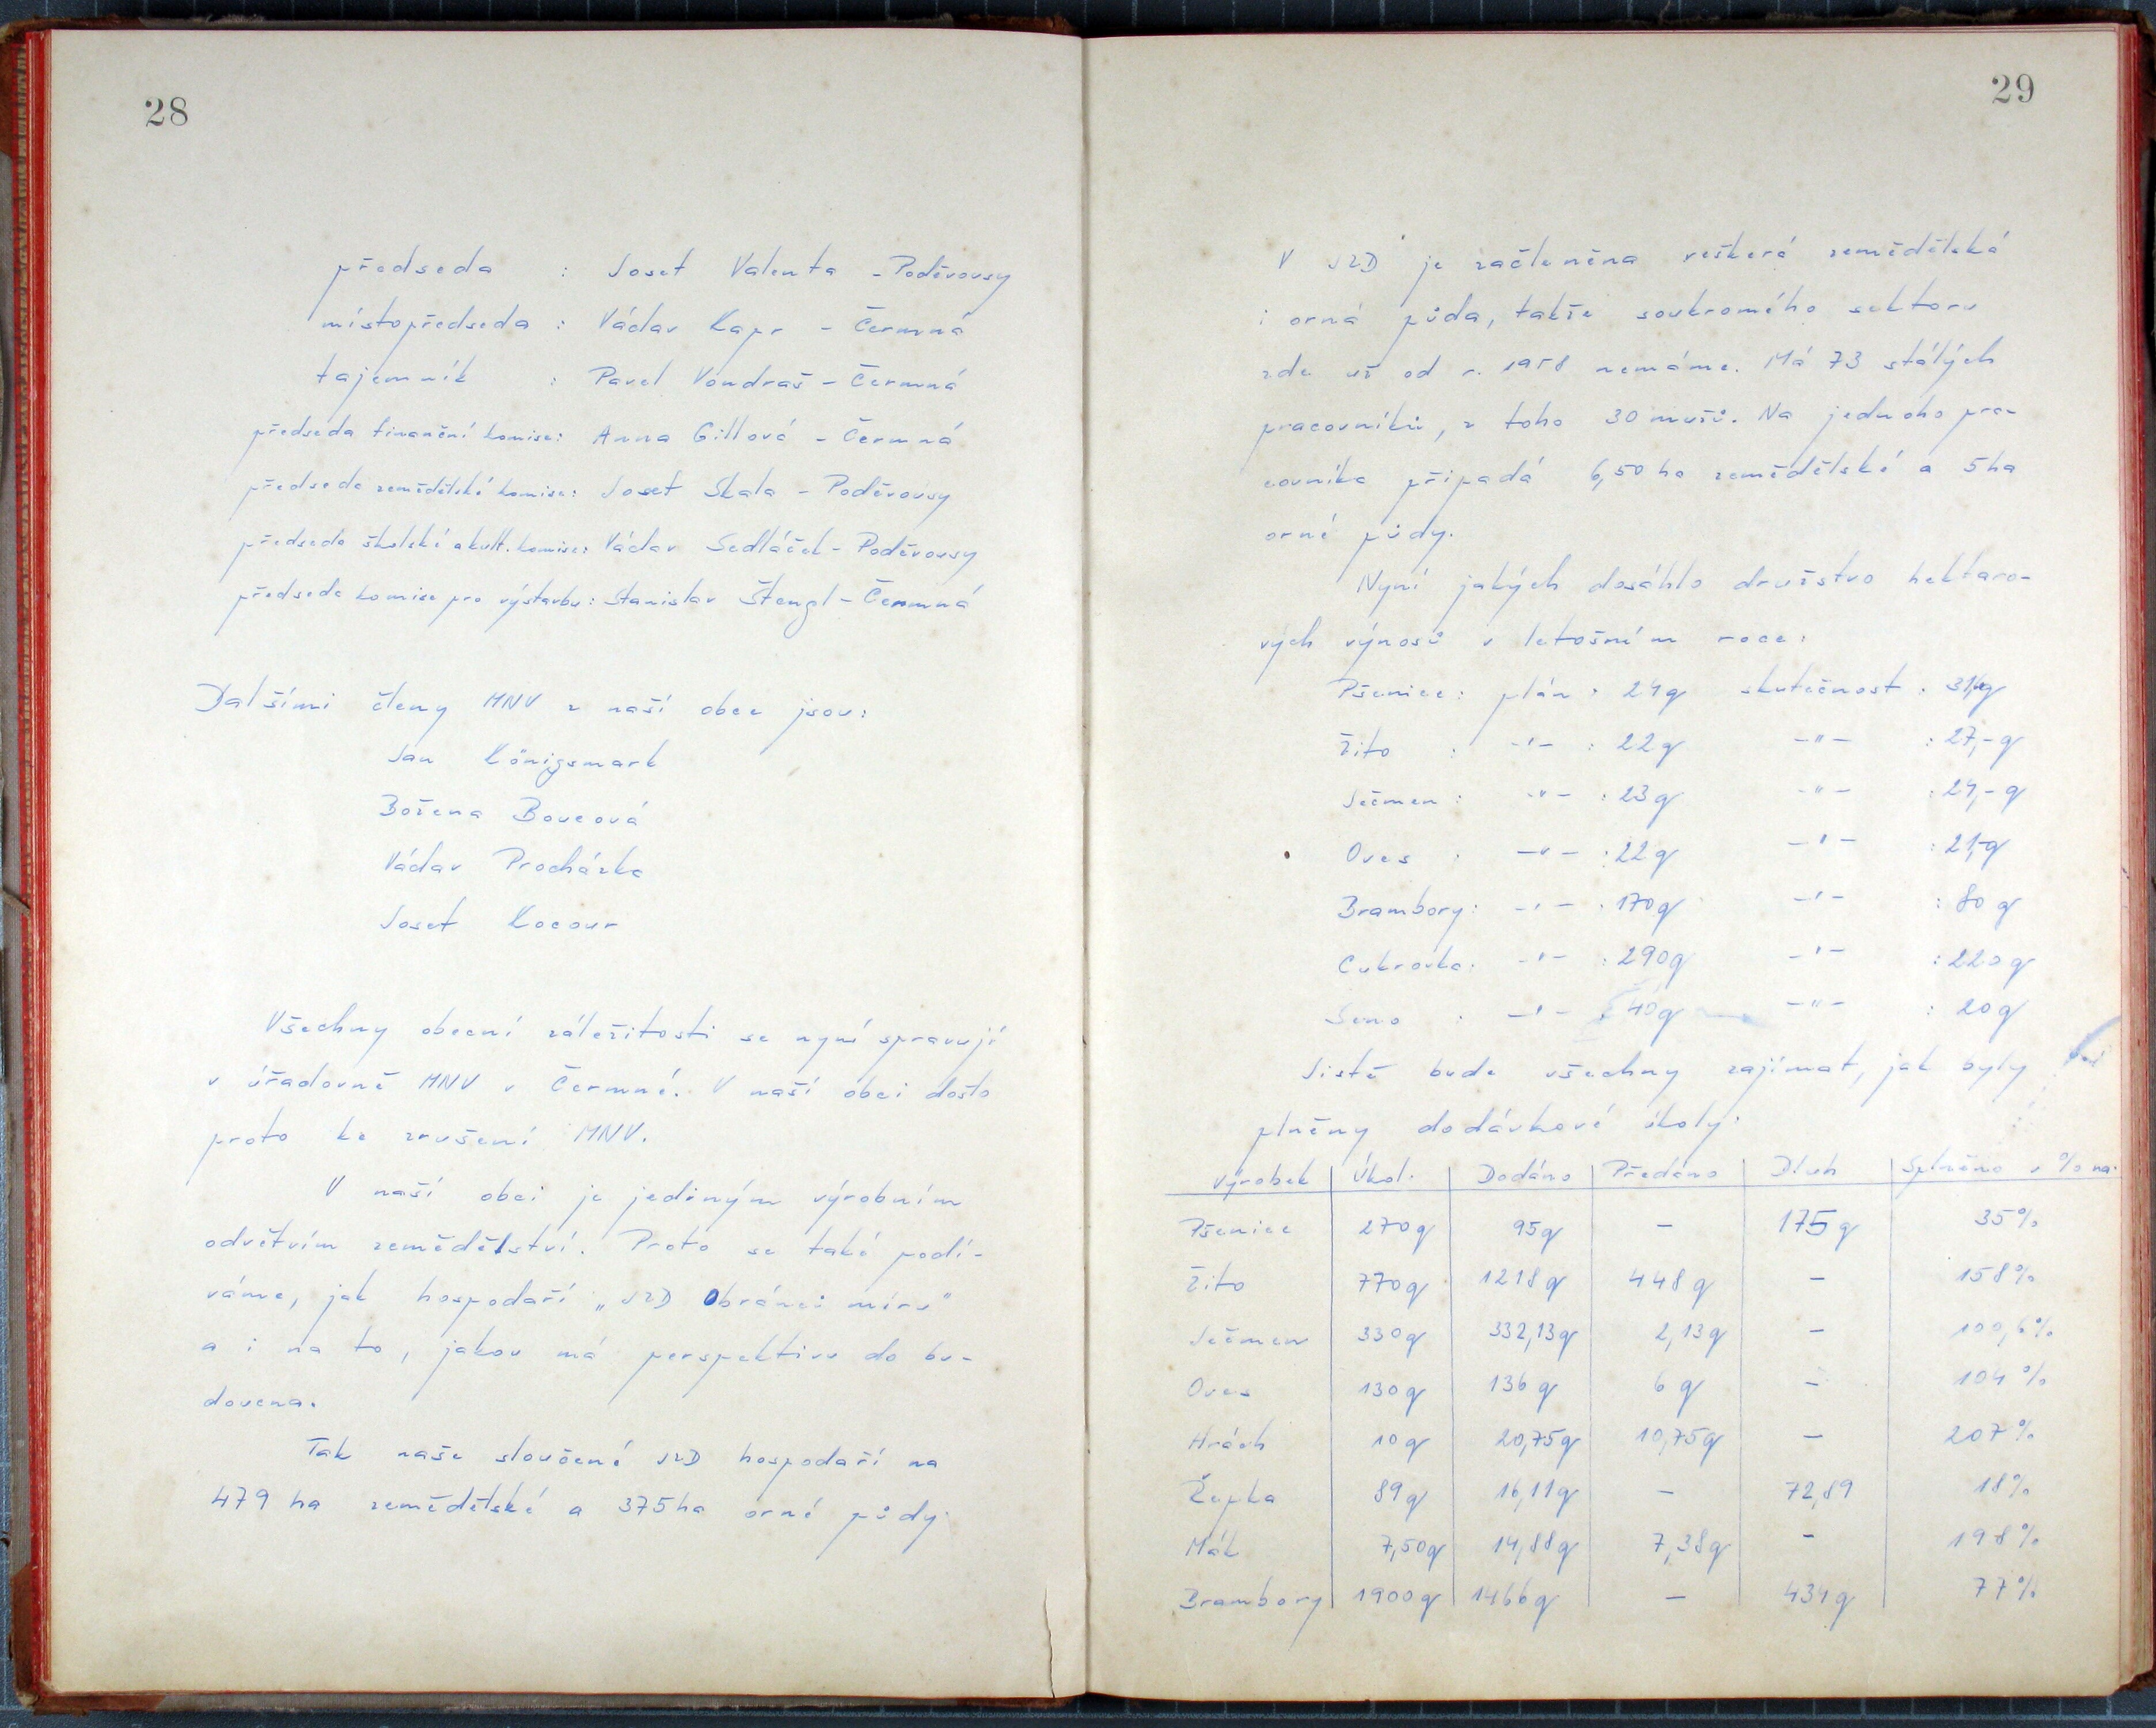 28
předseda : Josef Valenta - Poděvousy
místopředseda : Václav Kapr - Čermná
tajemník : Pavel Vondraš - Čermná
předseda finanční komise: Anna Gillová - Čermná
předseda zemědělské komise: Josef Skala - Poděvousy
předseda školské a kult. komise: Václav Sedláček - Poděvousy
předseda komise pro výstavbu: Stanislav Štengl - Čermná
Dalšími členy MNV z naší obce jsou:
Jan Königsmark
Božena Boucová
Václav Procházka
Josef Kocour
Všechny obecní záležitosti se nyní spravují
v úřadovně MNV v Čermné. V naší obci došlo
proto ke zrušení MNV.
V naší obci je jediným výrobním
odvětvím zemědělství. Proto se také podí-
váme, jak hospodaří „JZD Obránci míru"
a i na to, jakou má perspektivu do bu-
doucna.
Tak naše sloučené JZD hospodaří na
479 ha zemědělské a 375 ha orné půdy.
29
V JZD je začleněna veškerá zemědělská
i orná půda, takže soukromého sektoru
zde už od r. 1958 nemáme. Má 73 stálých
pracovníků, z toho 30 mužů. Na jednoho pra-
covníka připadá 6,50 ha zemědělské a 5 ha
orné půdy.
Nyní jakých dosáhlo družstvo hektaro-
vých výnosů v letošním roce:
Pšenice: plán: 24 q skutečnost: q
Žito : -"- : 22 q -"- : 27,- q
Ječmen : -"- : 23 q -"- : 24,- q
Oves : -"- : 22 q -"- : 21,- q
Brambory: -"- : 170 q -"- : 80 q
Cukrovka: -"- : 290 q -"- : 220 q
Seno : -"- : 40 q -"- : 20 q
Jistě bude všechny zajímat, jak byly
plněny dodávkové úkoly:
Výrobek | Úkol. | Dodáno | Předáno | Dluh | Splněno v % na:
Pšenice 270 q 95 q - 175 q 35 %
Žito 770 q 1218 q 448 q - 158 %
Ječmen 330 q 332,13 q 2,13 q - 100,6 %
Oves 130 q 136 q 6 q - 104 %
Hrách 10 q 20,75 q 10,75 q - 207 %
Řepka 89 q 16,11 q - 72,89 18 %
Mák 7,50 q 14,88 q 7,38 q - 198 %
Brambory 1900 q 1466 q - 434 q 77 %